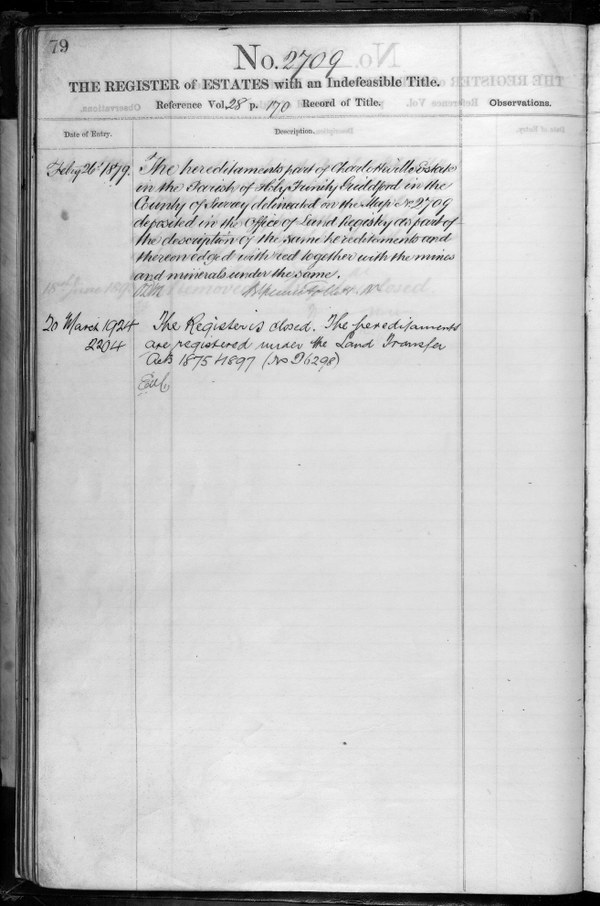 79
No. 2709
THE REGISTER of ESTATES with an Indefeasible Title.
Reference Vol. 28 p. 170 Record of Title.
Observations.
Date of Entry.
Description.
Feby 26 1879.
The hereditaments part of Charlotteville Estate
in the Parish of Holy Trinity Guildford in the
County of Surrey delineated on the Map No. 2709
deposited in the Office of Land Registry as part of
the description of the same hereditaments and
thereon edged with red together with the mines
and minerals under the same.
20 March 1924
2204
The Register is closed. The hereditaments
are registered under the Land Transfer
Acts 1875 & 1897 (No 26298)